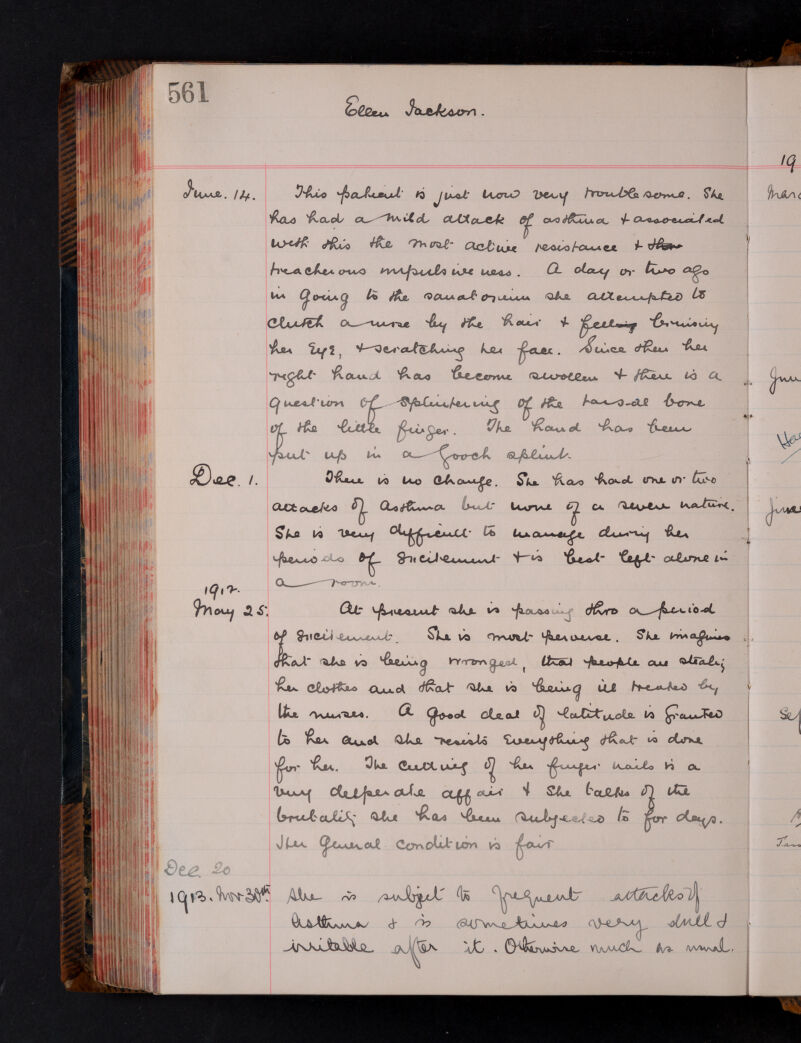 561
Ellen Jackson.
June. 14. This patient is just now very troublesome. She
has had a mild attack of asthma & associated
with this the most active resistance &
treacherous impulsiveness. A day or two ago
in going to the sanatorium she attempted to
clutch a nurse by the hair & bruising
her eye, & scratching her face. Since then her
right hand has become swollen & there is a
question of splintering of the tarsal bone
of the little finger. The hand has been
put up in a Gooch splint.
Dec. 1. There is no change. She has had one or two
attacks of Asthma but none of a severe nature.
She is very difficult to manage during her
periods of excitement & is best left alone in
a room.
1912.
May 25. At present she is passing thro a period
of excitement. She is most perverse. She imagines
that she is being wronged, that people are stealg
her clothes and that she is being ill treated by
the nurses. A good deal of latitude is granted
to her and she resists everything that is done
for her. The cutting of her finger nails is a
very desperate affair & she talks of the
brutality she has been subjected to for days.
Her general condition is fair
Dec 20
1913. Nov 30th She is subjet to frequent attacks of
Asthma & is sometimes very dull &
irritable after it. Otherwise much as usual.
19
June